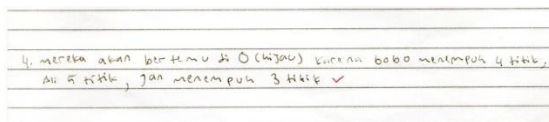 4. mereka akan bertemu di O (hijau) karena bobo menempuh 4 titik,
Ali 5 titik, Jan menempuh 3 titik ✓